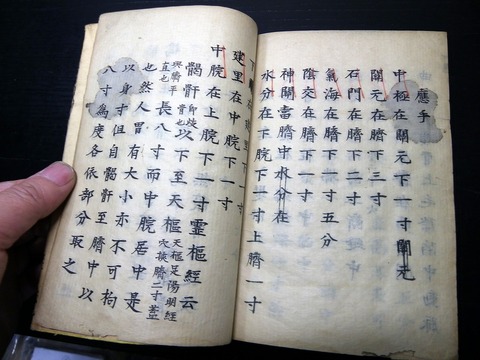 應手
中極在關元下一寸關元
關元在臍下三寸
石門在臍下二寸
氣海在臍下一寸五分
陰交在臍下一寸
神闕當臍中水分在
水分在下脘下寸上臍一寸
下里下一寸
建里在中脘下一寸
中脘在上脘下寸靈樞經云
䯏骬以下至天樞天樞足陽明經穴挾臍二寸蓋
與臍平直也長八寸而中脘居中是
也然人胃有大小亦不可拘
以身寸但自䯏骬至臍中以
八寸為度各依部分取之